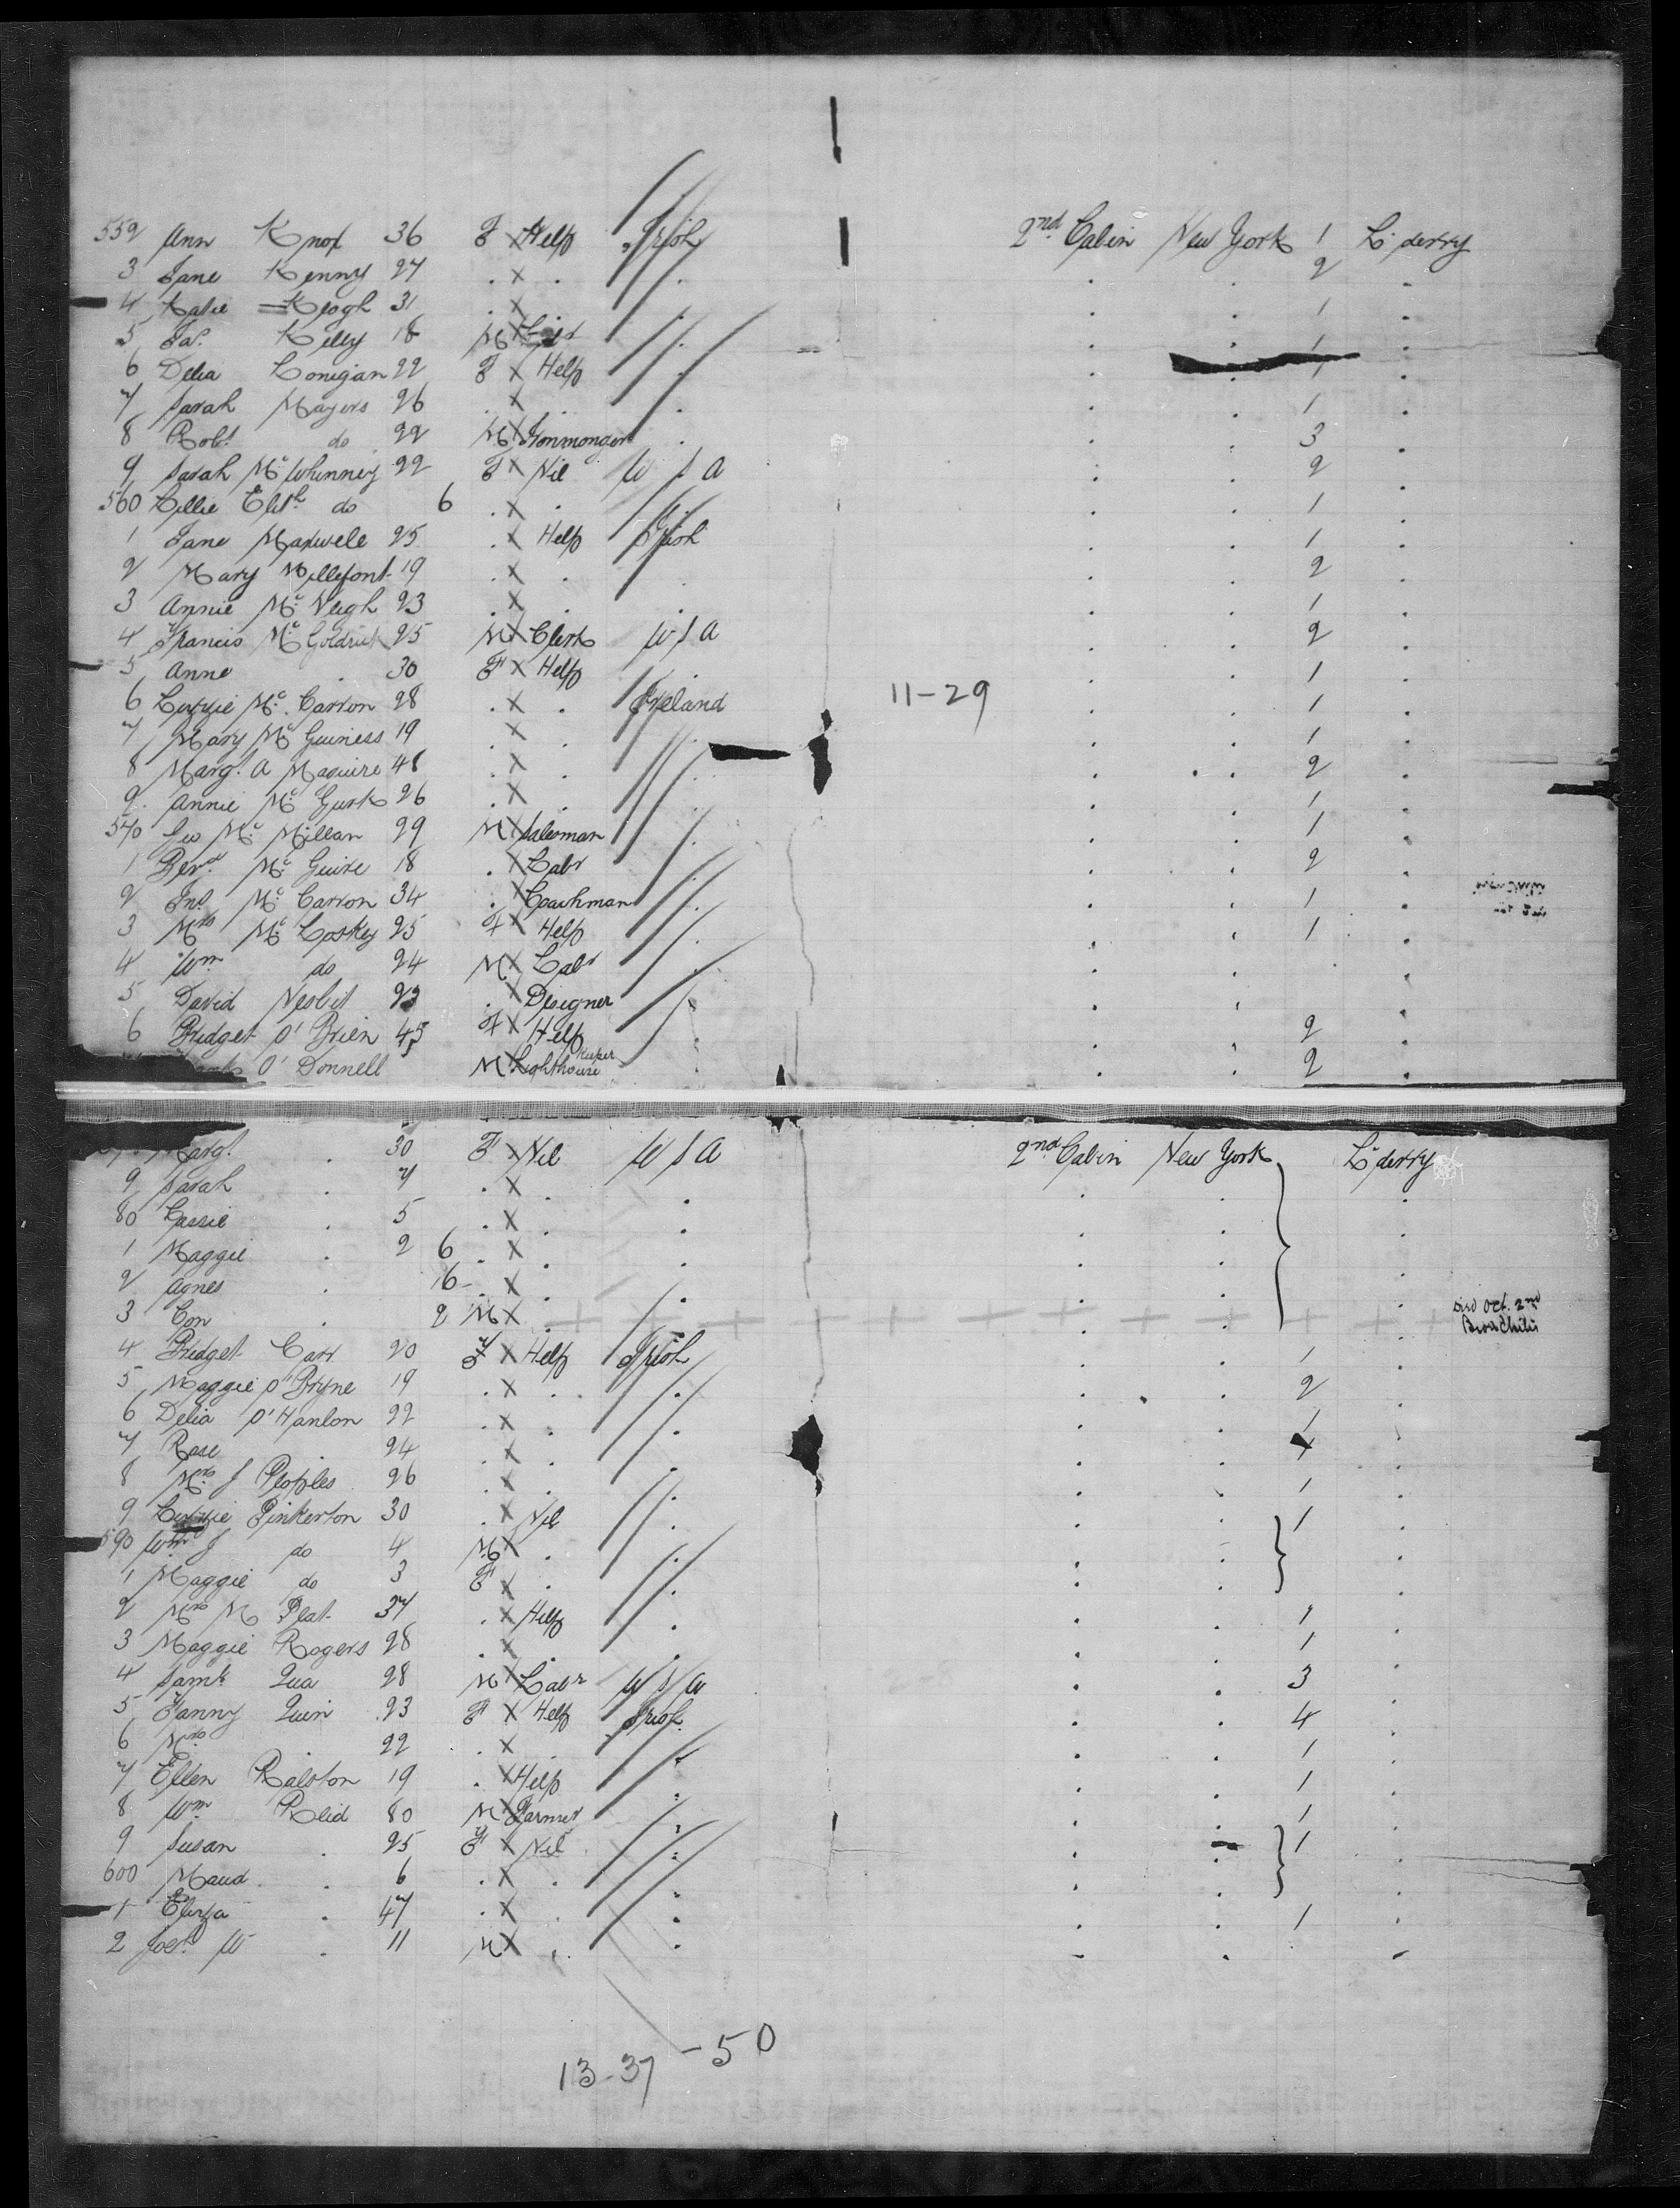 552 Ann Knox 36 F X Help Irish 2nd Cabin New York 1 L'derry
3 Jane Kenny 27 . X . . . . 2 .
4 Katie Keogh 31 . X . . . 1 .
5 Jas. Kelly 18 M X . . . 1 .
6 Delia Lonigan 22 F X Help . . . 1 .
7 Sarah Mayers 26 . X . . . . 1 .
8 Robt do 22 M X Ironmonger . . . 3 .
9 Sarah McWhinney 22 F X Nil U S A . . 2 .
560 Lillie Elisth do 6 . X . . . . 1 .
1 Jane Maxwell 25 . X Help Irish . . 1 .
2 Mary Mellefont 19 . X . . . . 2 .
3 Annie Mc Veigh 23 . X . . . . 1 .
4 Francis Mc Goldrick 25 M X Clerk U S A . . 2 .
5 Anne . 30 F X Help . . . 1 .
6 Lizzie Mc Carron 28 . X . Ireland 11-29 . . 1 .
7 Mary Mc Guiness 19 . X . . . 1 .
8 Margt A Maguire 48 . X . . . 2 .
9 Annie Mc Gurk 26 . X . . . 1 .
570 Geo Mc Millan 29 M X Salesman . . 1 .
1 Bernd Mc Guire 18 . X Labr . . 2 .
2 Jno Mc Carron 34 . X Coachman . . . 1 .
3 Mrs Mc Loskey 25 F X Help . . . 1 .
4 Wm do 24 M X Labr . . . .
5 David Nesbit 23 . X Designer . . . .
6 Bridget O'Brien 45 F X Help . . . 2 .
O'Donnell M X Lighthouse Keeper . . 2 .
Margt . 30 F X Nil U S A 2nd Cabin New York L'derry
9 Sarah . 7 . X . . . . .
80 Cassie . 5 . X . . . . .
1 Maggie . 2 6 . X . . . . .
2 Agnes . 16 - X . . . . .
3 Con . 2 M X . . . . Died Oct. 2nd
Bronchitis
4 Bridget Carr 20 F X Help Irish . . 1 .
5 Maggie O'Bryne 19 . X . . . . 2 .
6 Delia O'Hanlon 22 . X . . . . 1 .
7 Rose . 24 . X . . . . 1 .
8 Mrs J Peoples 26 . X . . . . 1 .
9 Lizzie Pinkerton 30 . X Nil . . . 1 .
590 Wm J do 4 M X . . . . .
1 Maggie do 3 F X . . . . .
2 Mrs M Plat 37 . X Help . . . 1 .
3 Maggie Rogers 28 . X . . . . 1 .
4 Saml Qua 28 M X Labr U S A . . 3 .
5 Fanny Quin 23 F X Help Irish . . 4 .
6 Mrs . 22 . X . . . . 1 .
7 Ellen Ralston 19 . X Help . . . 1 .
8 Wm Reid 80 M X Farmer . . . 1 .
9 Susan . 25 F X Nil . . . 1 .
600 Maud . 6 . X . . . . .
1 Eliza . 47 . X . . . . 1 .
2 W . 11 M X . . . . .
13-37-50